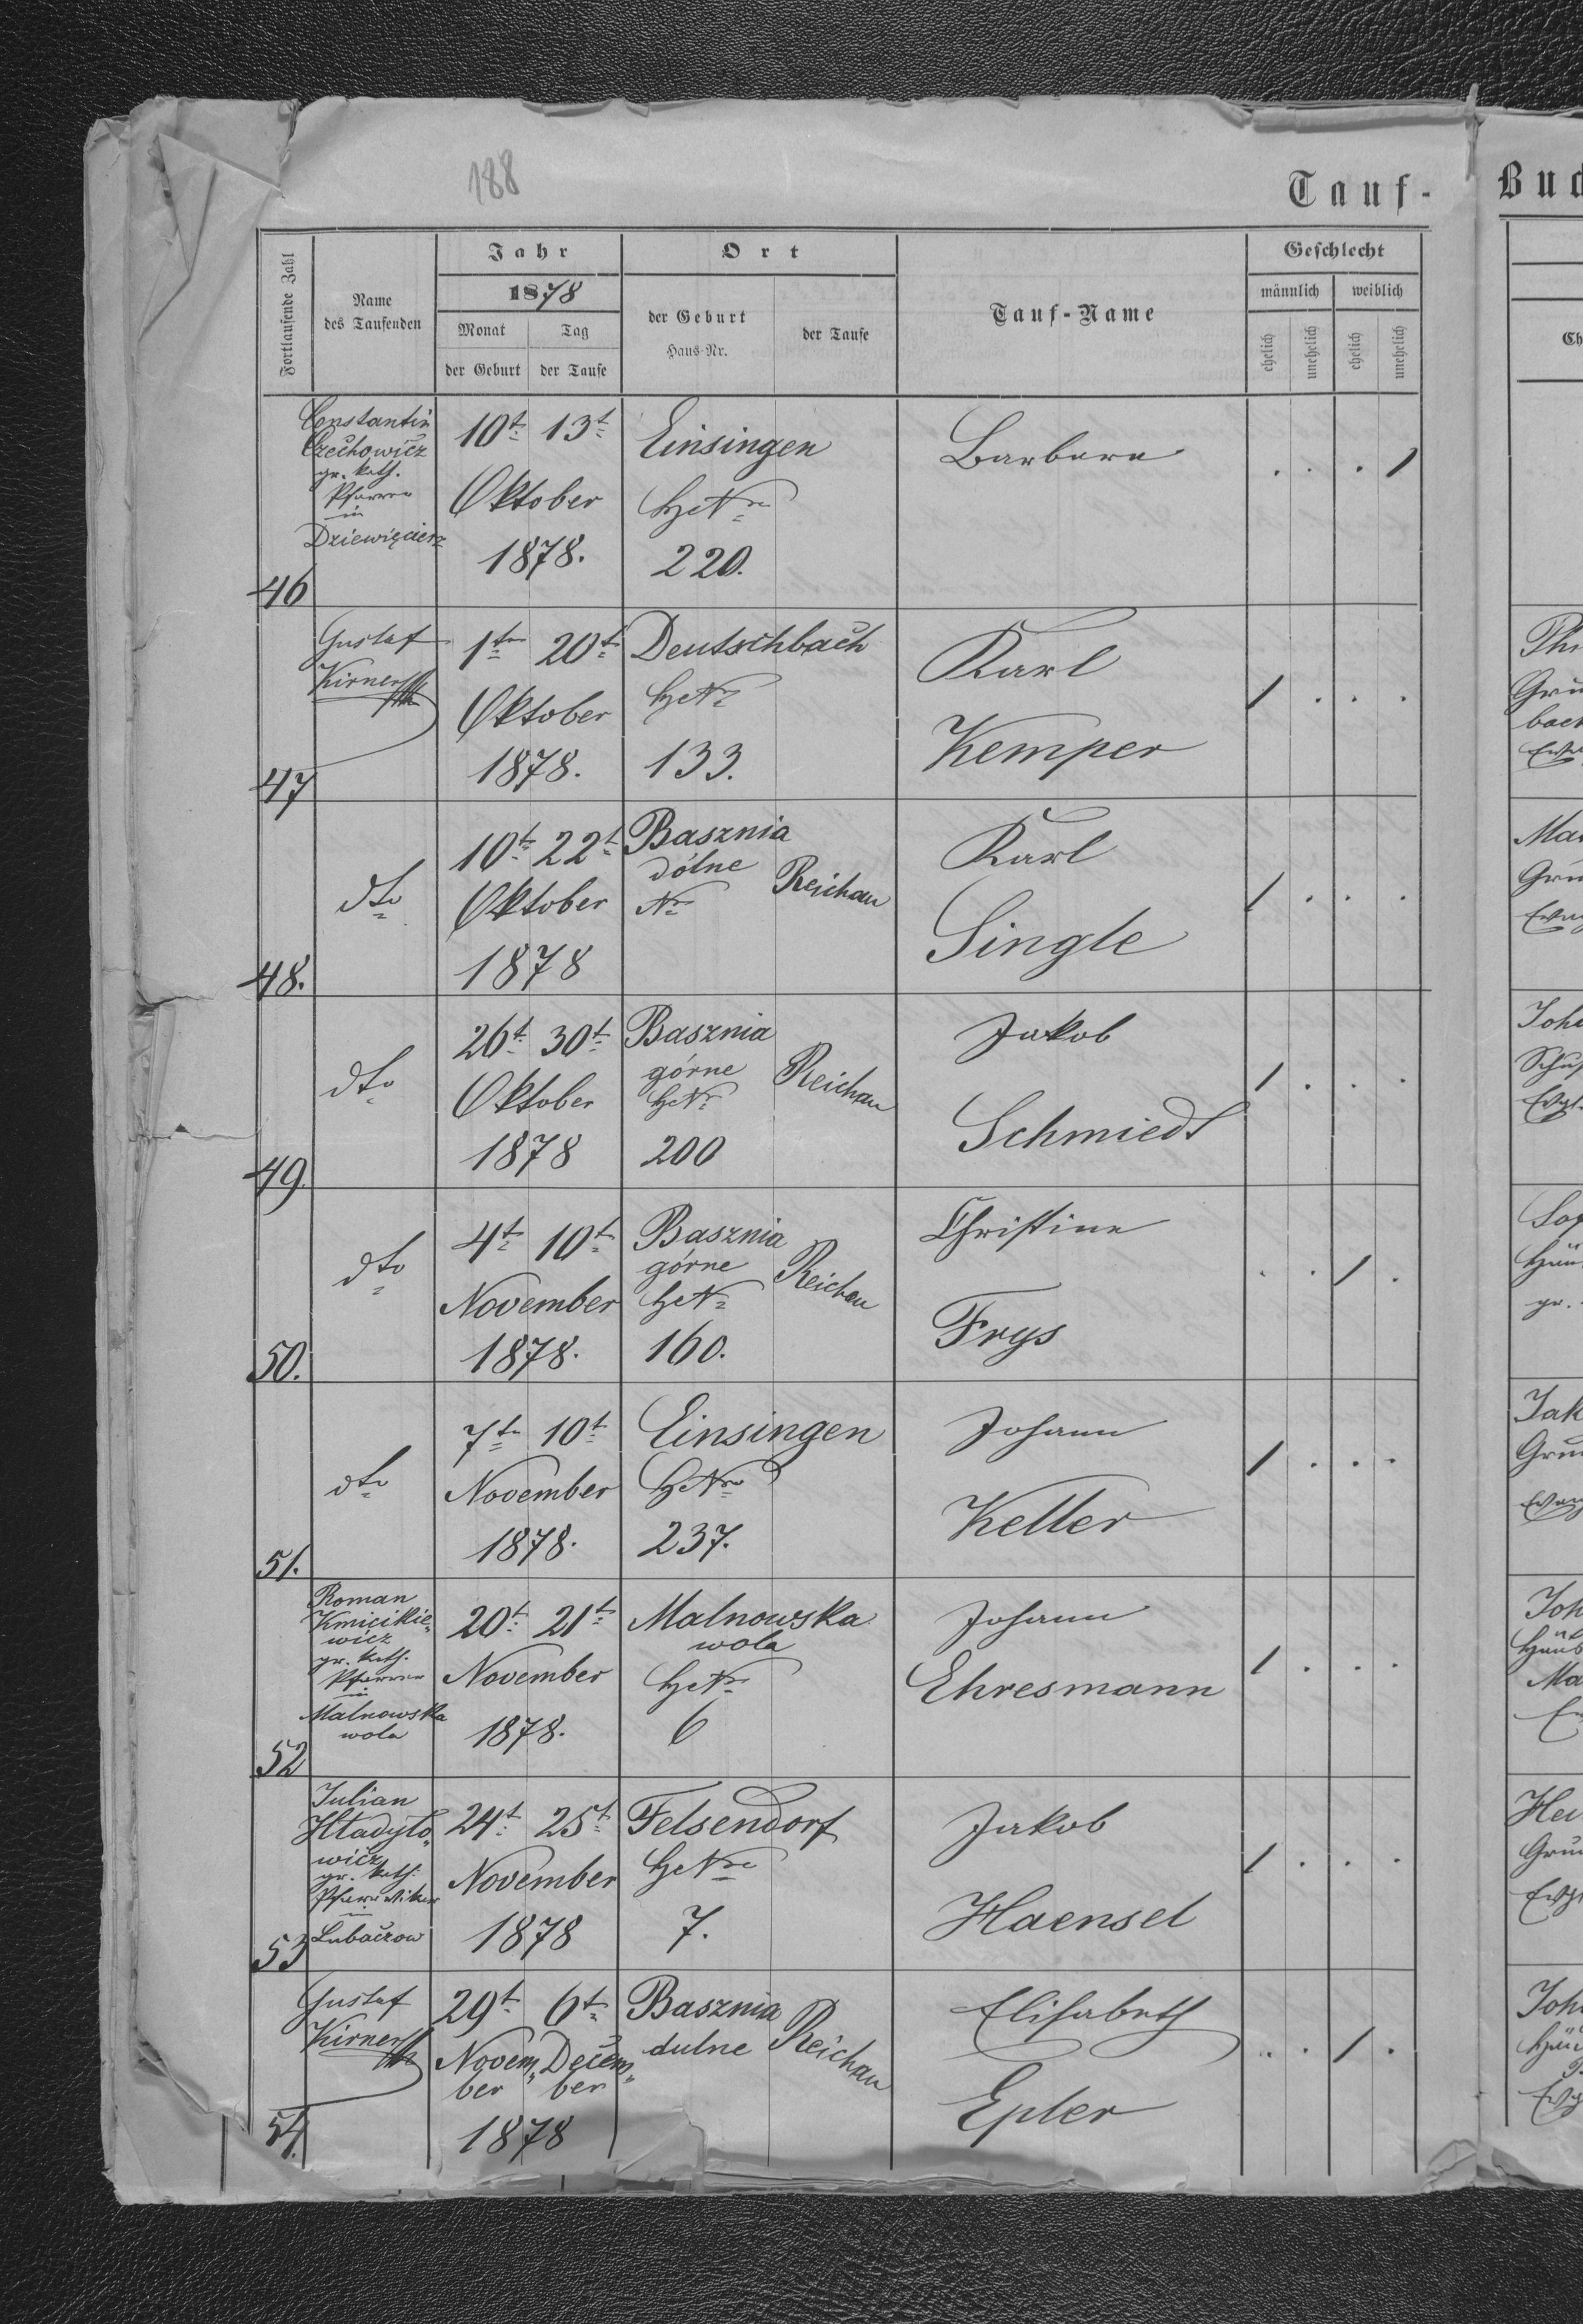 188
Tauf-
Buc
Fortlaufende Zahl
Name
des Taufenden
Jahr
1878
Monat
Tag
der Geburt
der Taufe
Ort
der Geburt
Haus-Nr.
der Taufe
Tauf-Name
Geschlecht
männlich
weiblich
ehelich
unehelich
ehelich
unehelich
Ch
46
Constantin
Czechowicz
gr. kath.
Pfarrer
in
Dziewięcierz
10t 13t
Oktober
1878.
Einsingen
HsNr
220.
Barbara
. . . 1
47
Gustaf
Kirner
1te 20t
Oktober
1878.
Deutschbach
HsNr
133.
Karl
Kemper
1 . . .
Gru
bach
48.
dto
10t 22t
Oktober
1878
Basznia
dólne
Nr
Reichau
Karl
Single
1 . . .
Gru
49.
dto
26t 30t
Oktober
1878
Basznia
górne
HsNr
200
Reichau
Jakob
Schmiedt
1 . . .
Joh
50.
dto
4t 10t
November
1878.
Basznia
górne
HsNr
160.
Reichau
Christine
Frys
. . 1 .
gr.
51.
dto
7te 10t
November
1878.
Einsingen
HsNr
237.
Johann
Keller
1 . . .
Jak
Gru
52
Roman
Kmicikie-
wicz
gr. kath.
Pfarrer
in
Malnowska
wola
20t 21t
November
1878.
Malnowska
wola
HsNr
6
Johann
Ehresmann
1 . . .
Joh
Ma
53
Julian
Hładyło-
wicz
gr. kath.
in
Lubaczow
24t 25t
November
1878
Felsendorf
HsNr
7.
Jakob
Haensel
1 . . .
Hei
Gru
54.
Gustaf
Kirner
29t 6t
Novem- Decem-
ber ber
1878
Basznia
dulne
Reichau
Elisabeth
Epler
. . 1 .
Joh